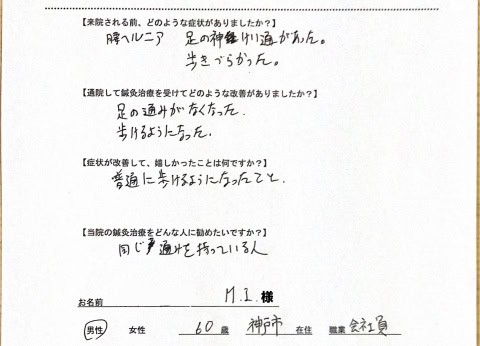 【来院される前、どのような症状がありましたか？】
腰ヘルニア 足の神経けい痛があった。
歩きづらかった。
【通院して鍼灸治療を受けてどのような改善がありましたか？】
足の痛みがなくなった.
歩けるようになった.
【症状が改善して、嬉しかったことは何ですか？】
普通に歩けるようになったこと.
【当院の鍼灸治療をどんな人に勧めたいですか？】
同じ痛みを持っている人
お名前 M.I. 様
男性 女性 60 歳 神戸市 在住 職業 会社員